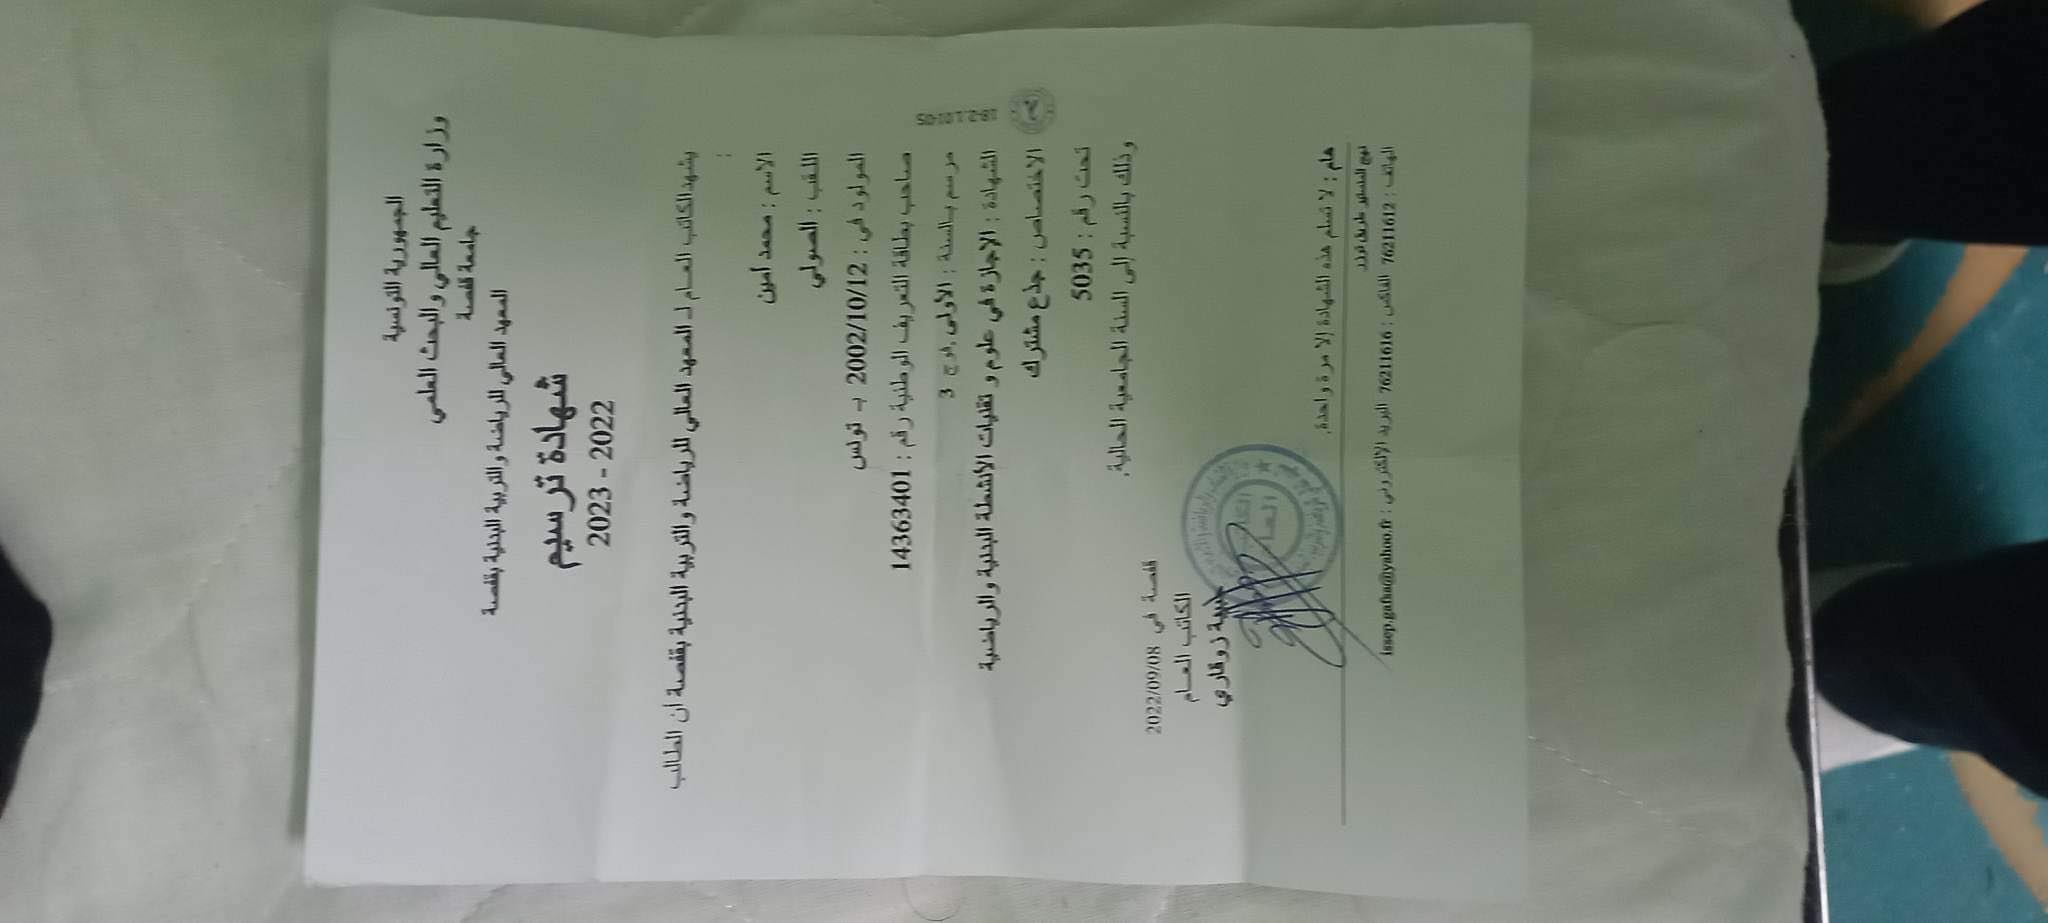 الجمهورية التونسية
وزارة التعليم العالي والبحث العلمي
جامعة قفصة
المعهد العالي للرياضة والتربية البدنية بقفصة
شهادة ترسيم
2023 - 2022
يشهد الكاتب العام لـ المعهد العالي للرياضة والتربية البدنية بقفصة ان الطالب
:
الاسم : محمد أمين
اللقب : الصولي
المولود في : 2002/10/12 بـ تونس
صاحب بطاقة التعريف الوطنية رقم : 14363401
مرسم بالسنة : الأولى فوج 3
الشهادة : الاجازة في علوم و تقنيات الأنشطة البدنية والرياضية
الاختصاص : جذع مشترك
تحت رقم : 5035
وذلك بالنسبة إلى السنة الجامعية الحالية.
18-2.1.01-05
قفصة في 2022/09/08
الكاتب العام
زوقاري
هام : لا تسلم هذه الشهادة إلا مرة واحدة.
نهج البشير طريق توزر
الهاتف : 76211612 الفاكس : 76211616 البريد الإلكتروني : issep.gafsa@yahoo.fr